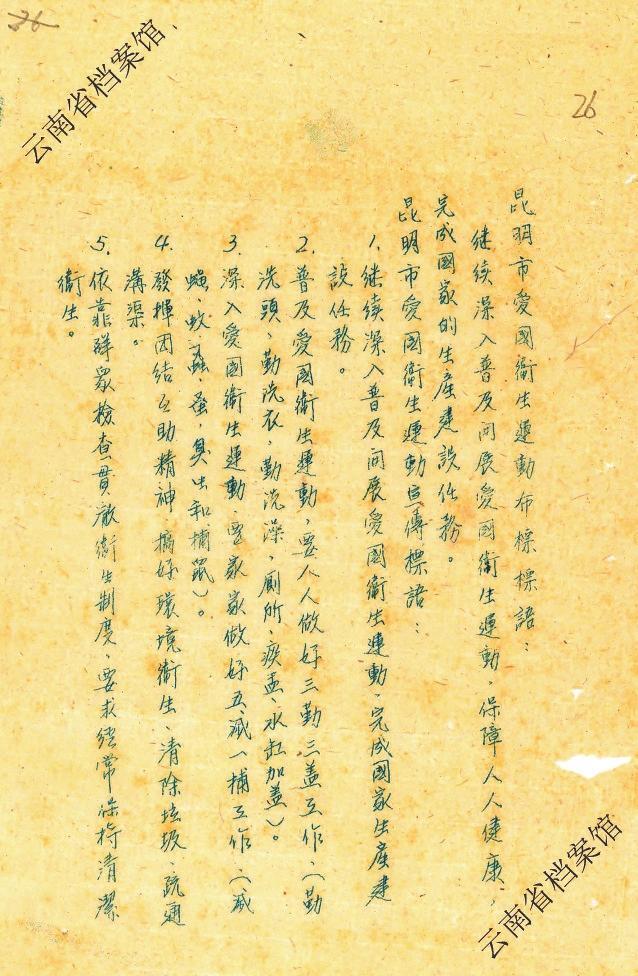 26
26
云南省档案馆
昆明市愛國衛生運動布標標語：
继续深入普及开展愛國衛生運動，保障人人健康，
完成國家的生產建設任務。
昆明市愛國衛生運動宣傳標語：
1.继续深入普及开展愛國衛生運動、完成國家生產建
設任務。
2.普及愛國衛生運動，要人人做好三勤三盖工作，（勤
洗頭、勤洗衣、勤洗澡，廁所、痰盂、水缸加盖）。
3.深入愛國衛生運動，要家家做好五滅一捕工作，（滅
蝇、蚊、蝨、蚤，臭虫和捕鼠）。
4.發揮团结互助精神，搞好環境衛生、清除垃圾、疏通
溝渠。
5.依靠群眾檢查貫徹衛生制度，要求经常保持清潔
衛生。
云南省档案馆